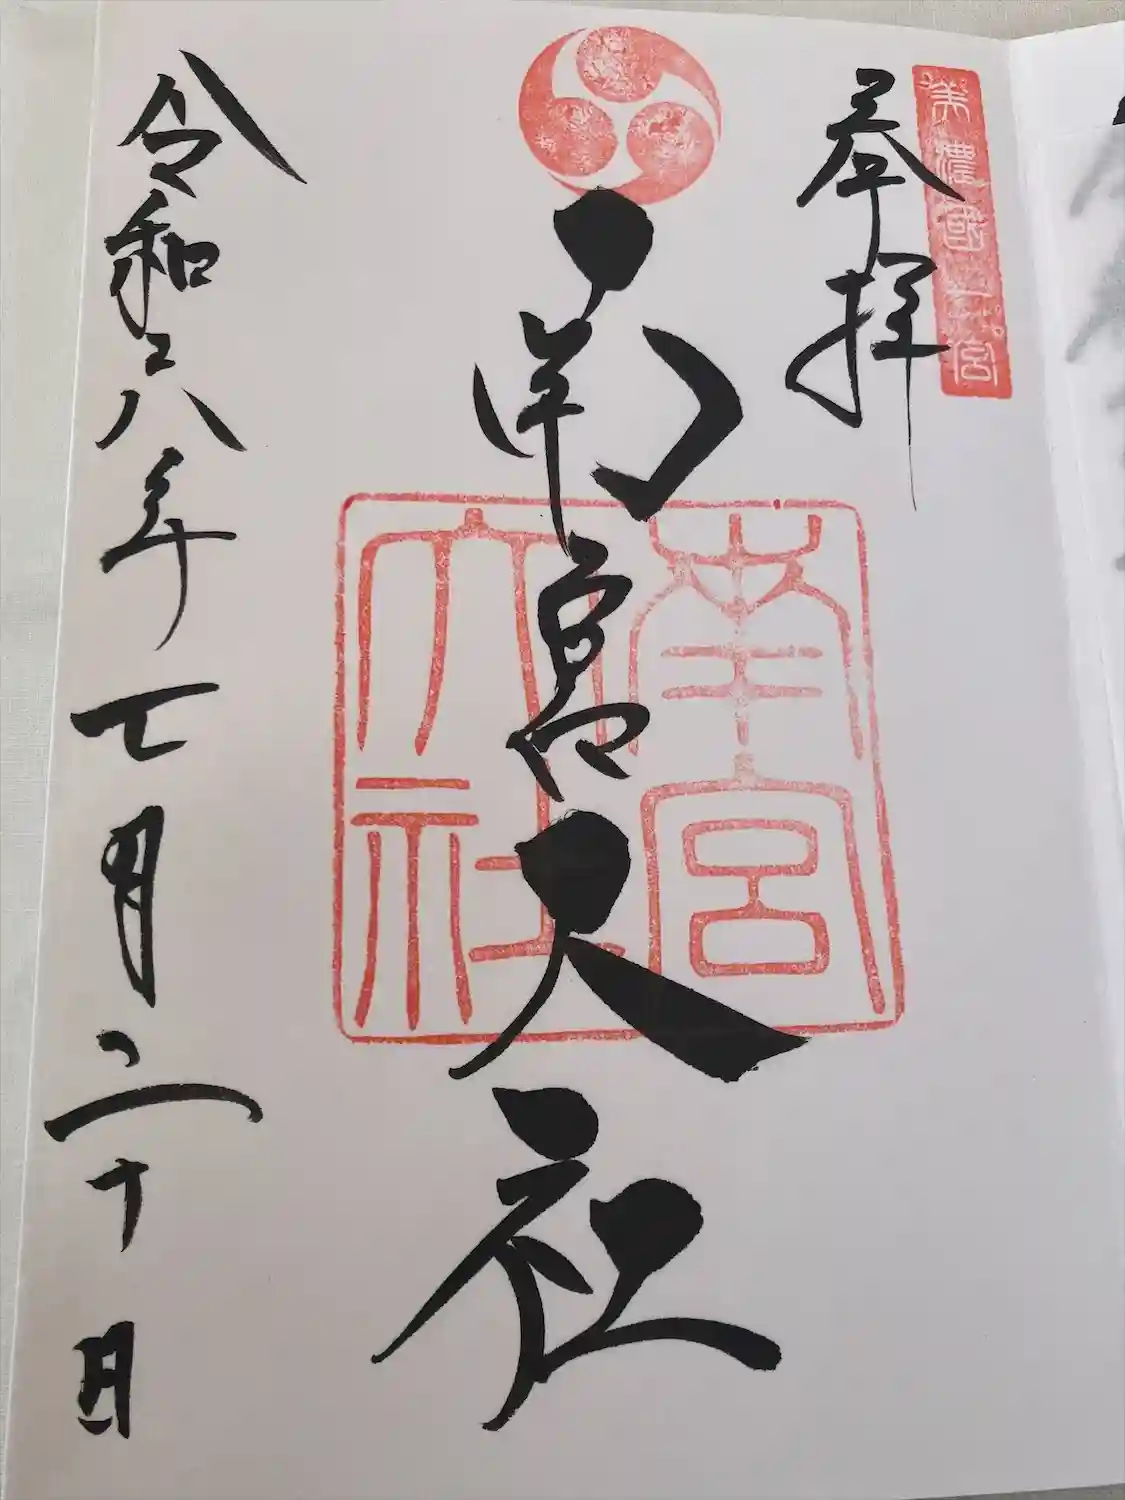 美濃國一宮
奉拝
南宮大社
南宮
大社
令和六年七月二十日